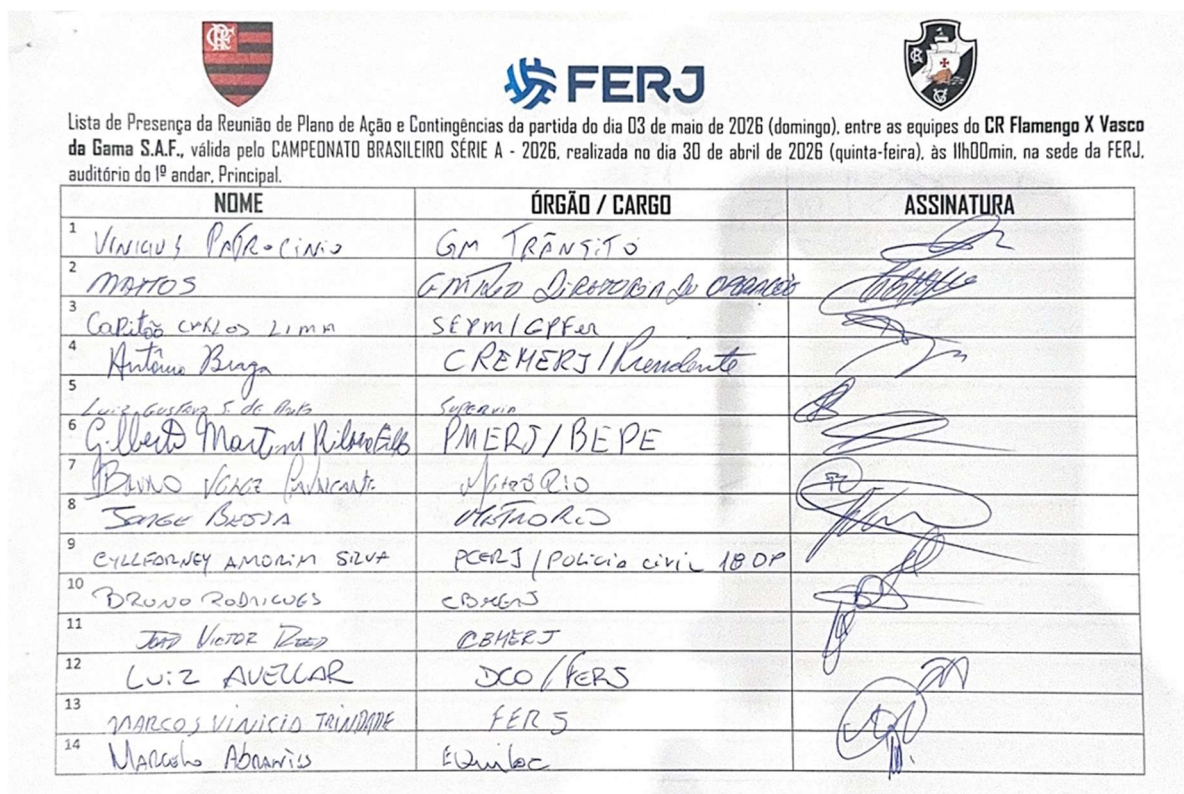 CRF
FERJ
Lista de Presença da Reunião de Plano de Ação e Contingências da partida do dia 03 de maio de 2026 (domingo), entre as equipes do CR Flamengo X Vasco
da Gama S.A.F., válida pelo CAMPEONATO BRASILEIRO SÉRIE A - 2026, realizada no dia 30 de abril de 2026 (quinta-feira), às 11h00min, na sede da FERJ,
auditório do 1º andar, Principal.
NOME ÓRGÃO / CARGO ASSINATURA
1 VINICIUS PATROCINIO GM TRÂNSITO
2 MATTOS DIRETORIA DE OPERAÇÃO
3 Capitão CARLOS LIMA SEPM/GPFer
4 Antônio Braga CREMERJ/Presidente
5 Luiz Gustavo S. de Supervia
6 Gilberto Martins Ribeiro Filho PMERJ/BEPE
7 BRUNO METRÔRIO
8 JORGE BESSA METRORIO
9 CYLLEARNEY AMORIM SILVA PCERJ/Policia civil 18 DP
10 BRUNO RODRIGUES CBMERJ
11 JOÃO VICTOR CBMERJ
12 LUIZ AVELLAR DCO/FERJ
13 MARCOS VINICIO TRINDADE FERJ
14 Marcelo Abrantes EQuiloc